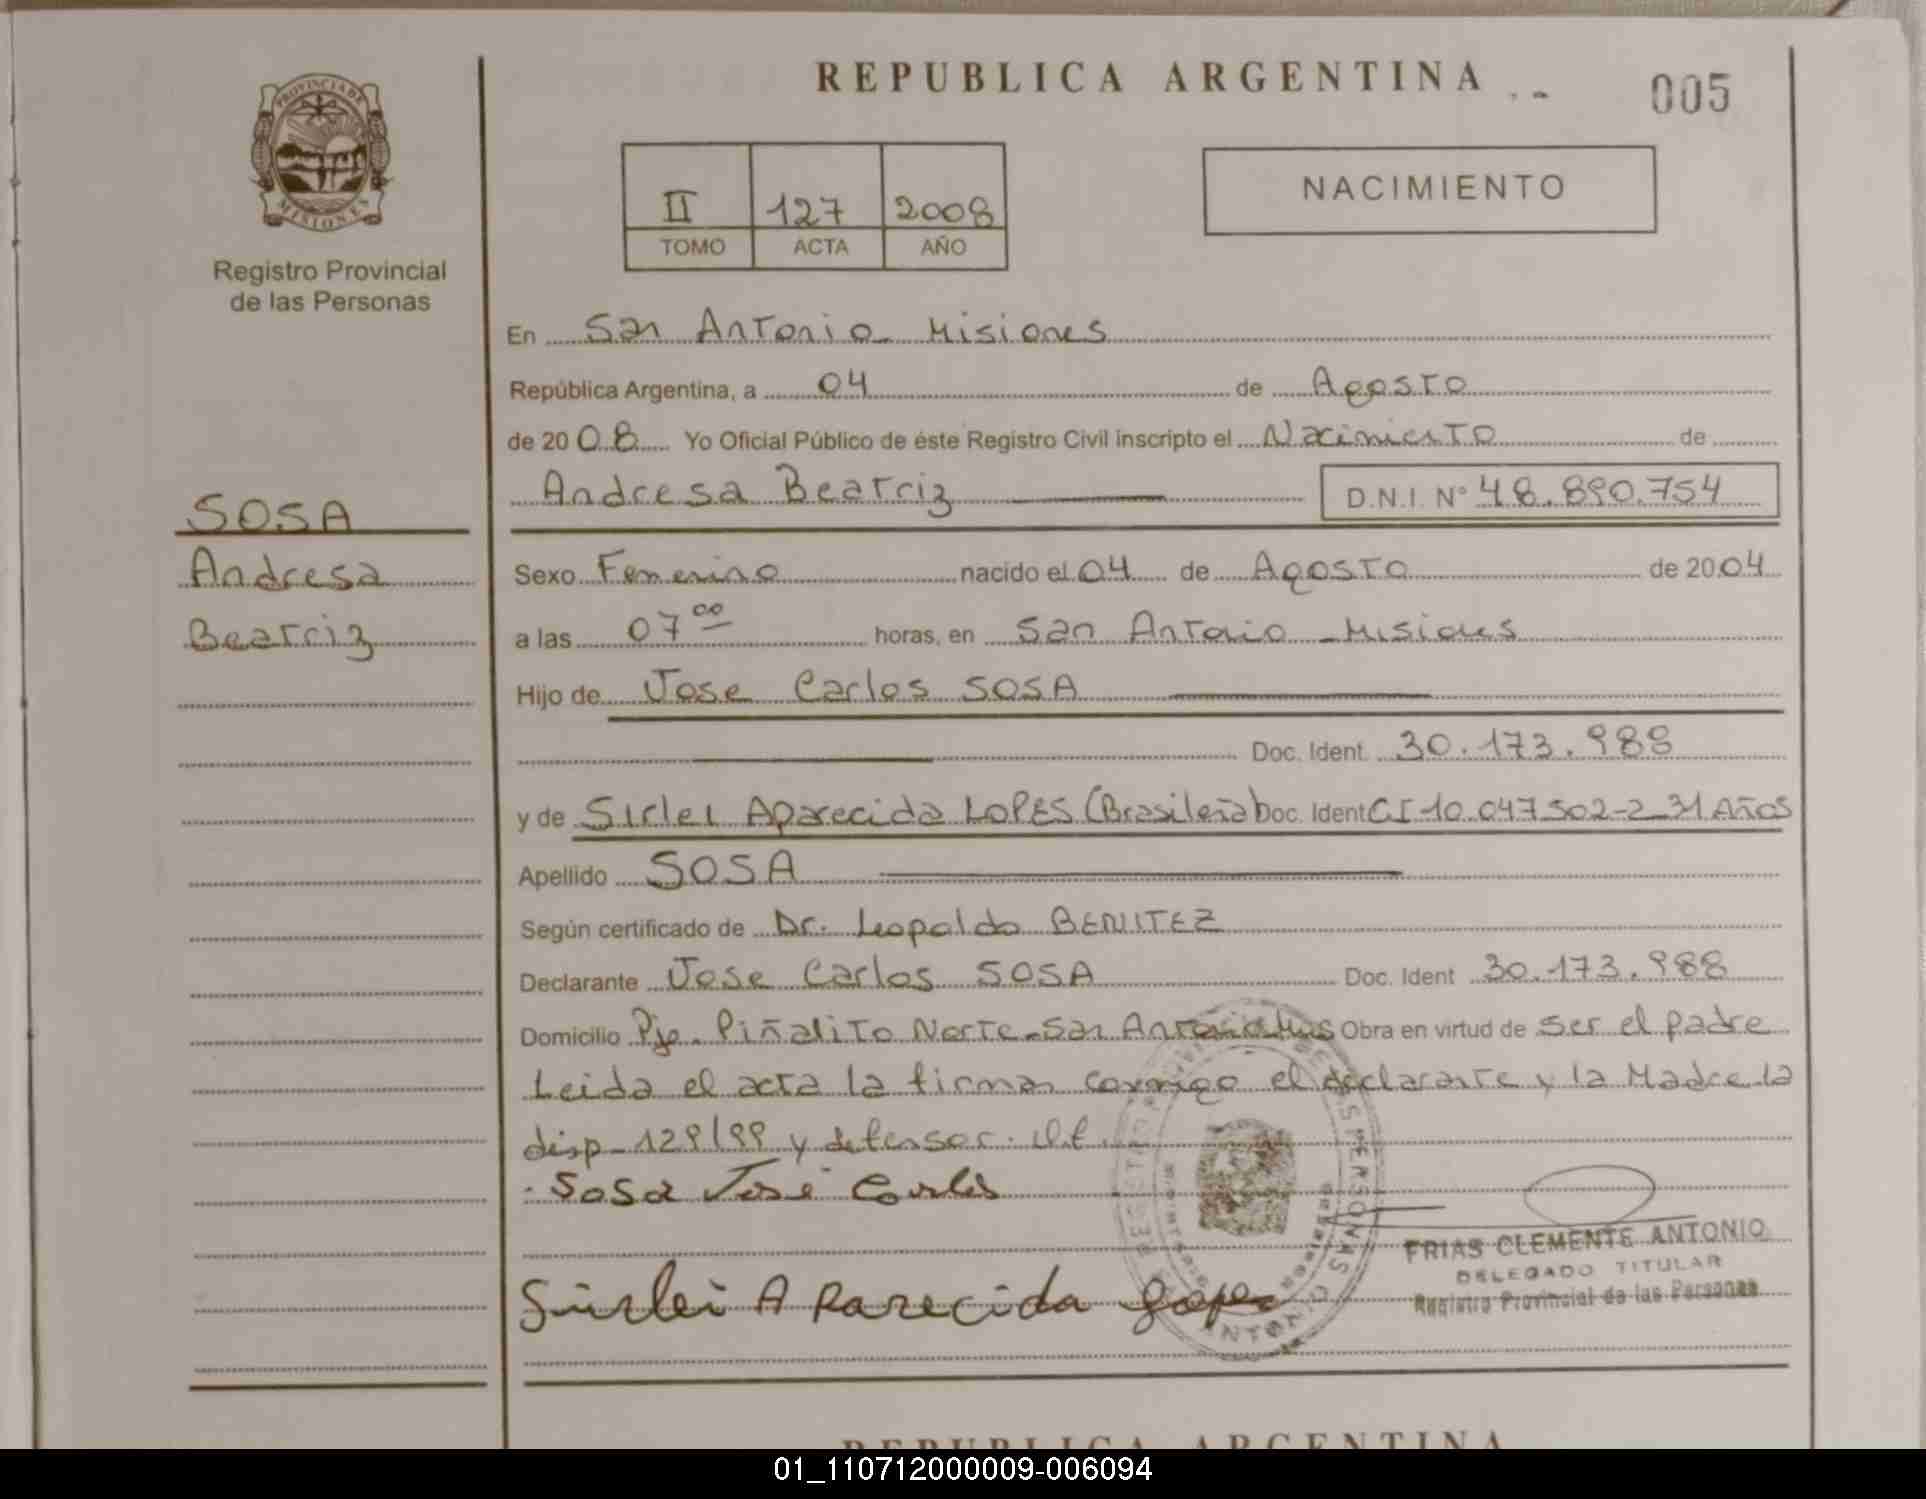 REPUBLICA ARGENTINA
005
PROVINCIA DE
MISIONES
Registro Provincial
de las Personas
II 127 2008
TOMO ACTA AÑO
NACIMIENTO
En San Antonio - Misiones
República Argentina, a 04 de Agosto
de 2008 Yo Oficial Público de éste Registro Civil inscripto el Nacimiento de
Andresa Beatriz D.N.I. N° 48.890.754
SOSA
Andresa
Beatriz
Sexo Femenino nacido el 04 de Agosto de 2004
a las 07 00 horas, en San Antonio - Misiones
Hijo de Jose Carlos SOSA
Doc. Ident. 30.173.988
y de Sirlei Aparecida LOPES (Brasileña) Doc. Ident CI 10.047.502-2 31 Años
Apellido SOSA
Según certificado de Dr. Leopoldo BENITEZ
Declarante Jose Carlos SOSA Doc. Ident 30.173.988
Domicilio Pje. Piñalito Norte - San Antonio Mns Obra en virtud de ser el padre
Leida el acta la firman conmigo el declarante y la Madre la
disp - 129/99 y defensor.
Sosa José Carlos
Sirlei Aparecida Lopes
FRIAS CLEMENTE ANTONIO
DELEGADO TITULAR
Registro Provincial de las Personas
REPUBLICA ARGENTINA
01_110712000009-006094